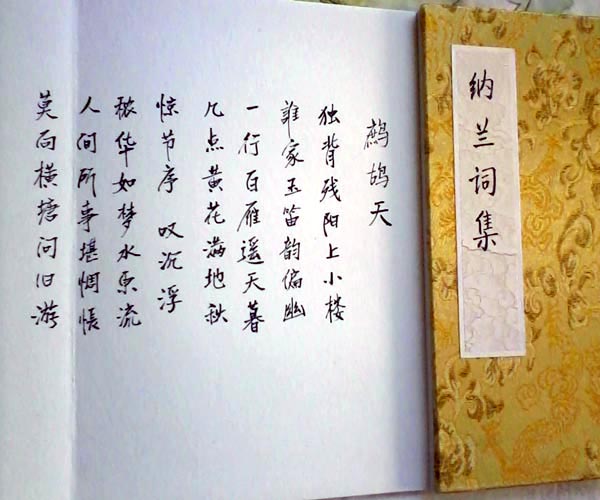 纳兰词集
鹧鸪天
独背残阳上小楼
誰家玉笛韵偏幽
一行白雁遥天暮
几点黄花满地秋
惊节序 叹沉浮
秾华如梦水东流
人间所事堪惆怅
莫向横塘问旧游